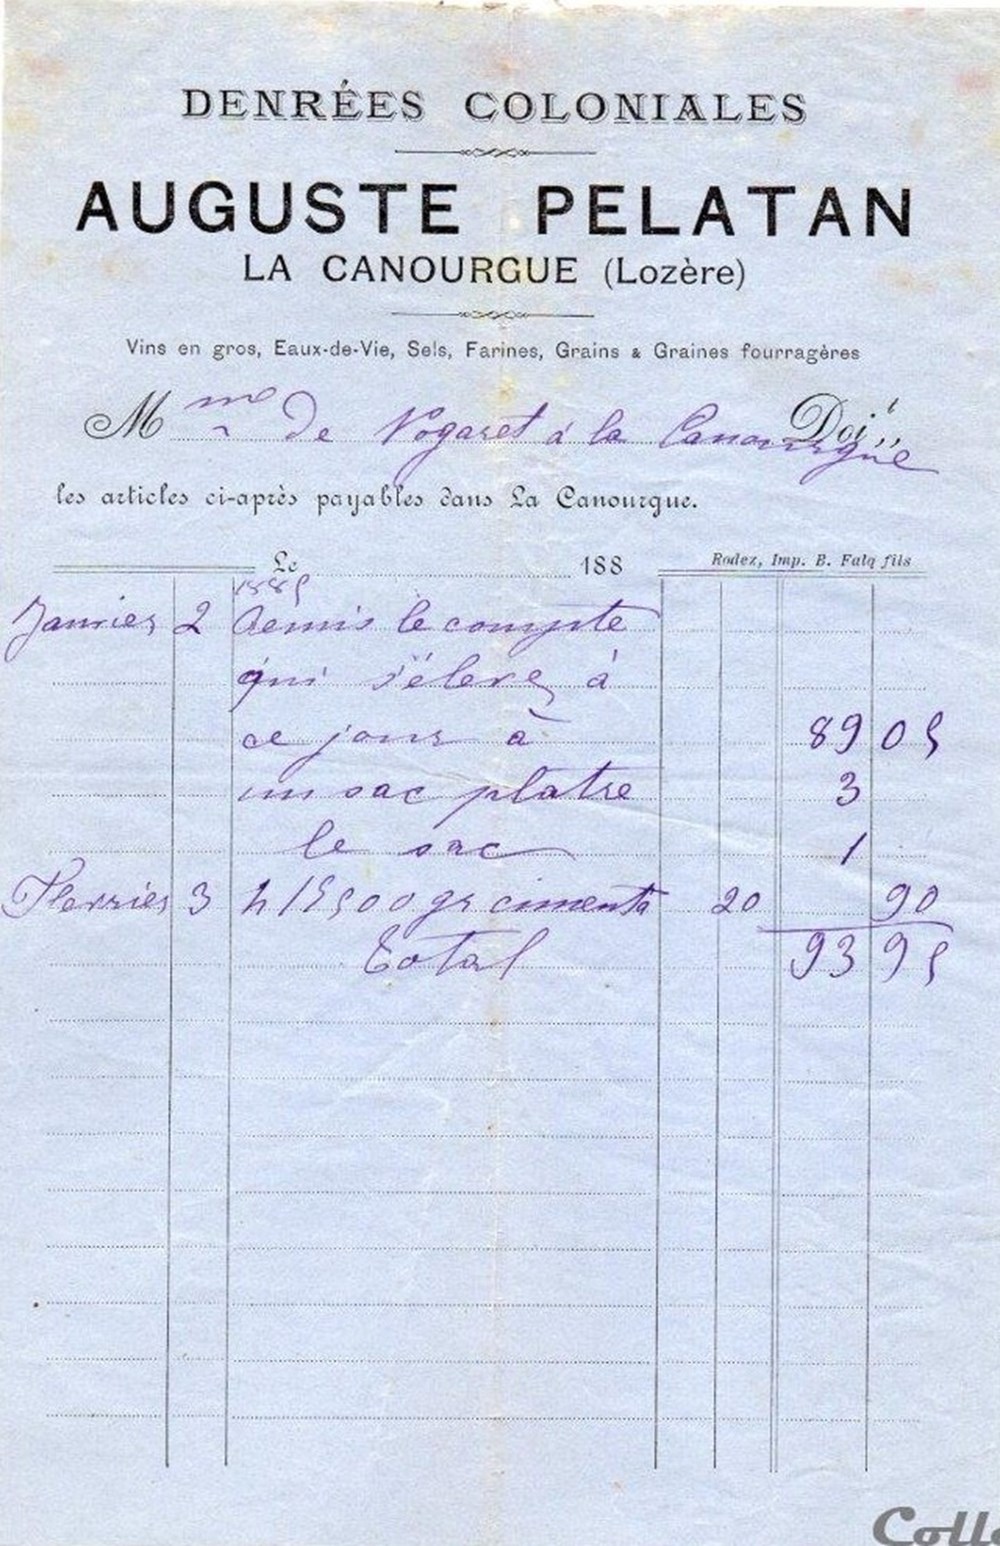 DENRÉES COLONIALES
AUGUSTE PELATAN
LA CANOURGUE (Lozère)
Vins en gros, Eaux-de-Vie, Sels, Farines, Grains & Graines fourragères
M me de Nogaret à la Canourgue Doit
les articles ci-après payables dans La Canourgue.
Le 188
Rodez, Imp. B. Falq fils
1885
Janvier 2 Remis le compte
qui s'éleve à
ce jour à 89 05
un sac platre 3
le sac 1
Fevrier 3 500 gr ciment 20 90
Total 93 95
Colle